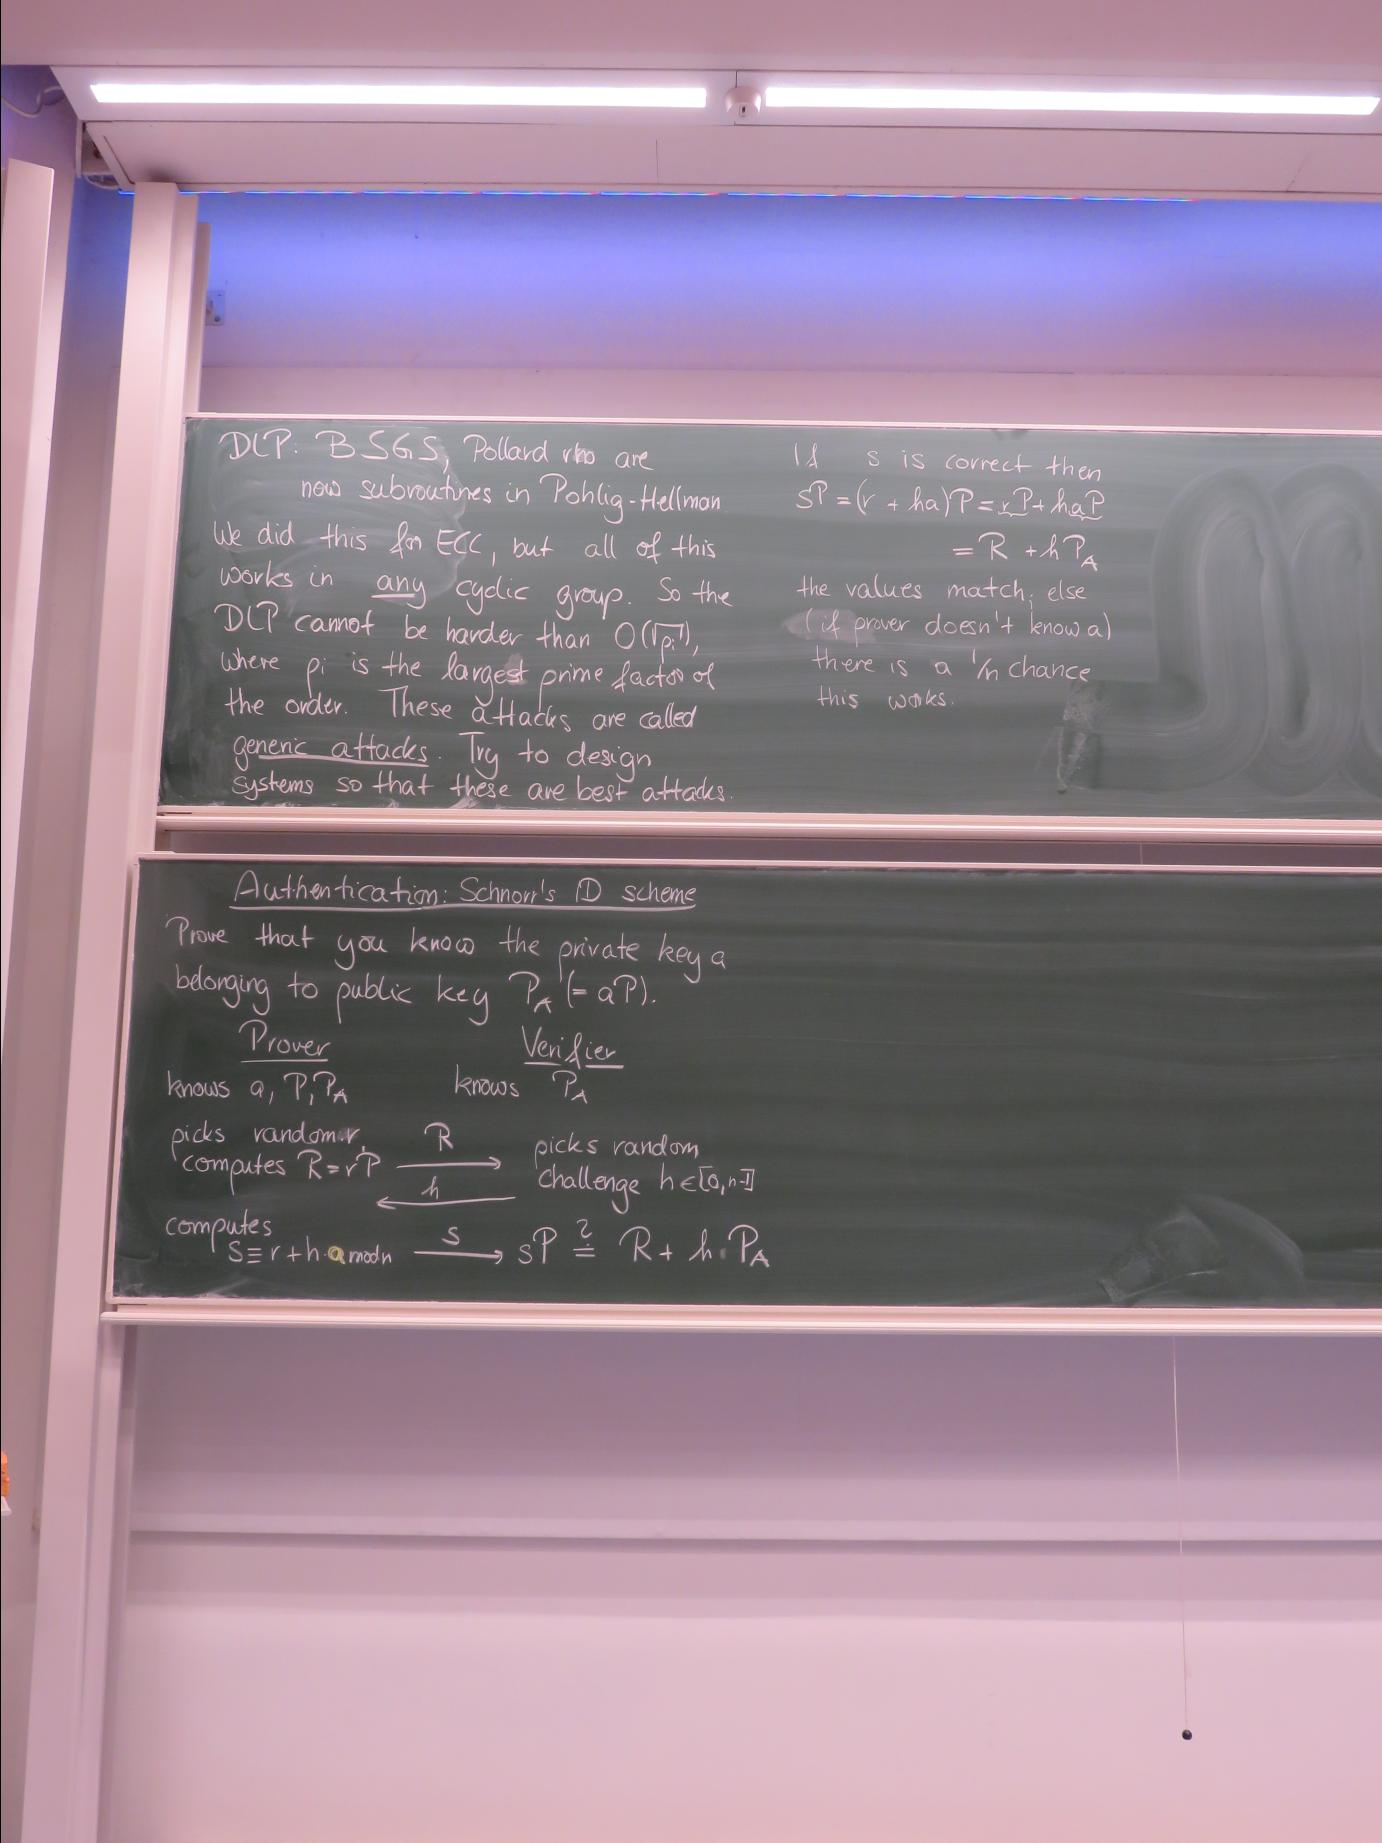 DLP: BSGS, Pollard rho are
now subroutines in Pohlig-Hellman
We did this for ECC, but all of this
works in any cyclic group. So the
DLP cannot be harder than O(√pi),
where pi is the largest prime factor of
the order. These attacks are called
generic attacks. Try to design
systems so that these are best attacks.
If s is correct then
sP = (r + ha)P = rP + haP
= R + hP_A
the values match; else
(if prover doesn't know a)
there is a 1/n chance
this works.
Authentication: Schnorr's ID scheme
Prove that you know the private key a
belonging to public key P_A (= aP).
Prover Verifier
knows a, P, P_A knows P_A
picks random r, R picks random
computes R = rP → challenge h ∈ [0, n-1]
h ←
computes
s ≡ r + h·a mod n s → sP ≟ R + h·P_A